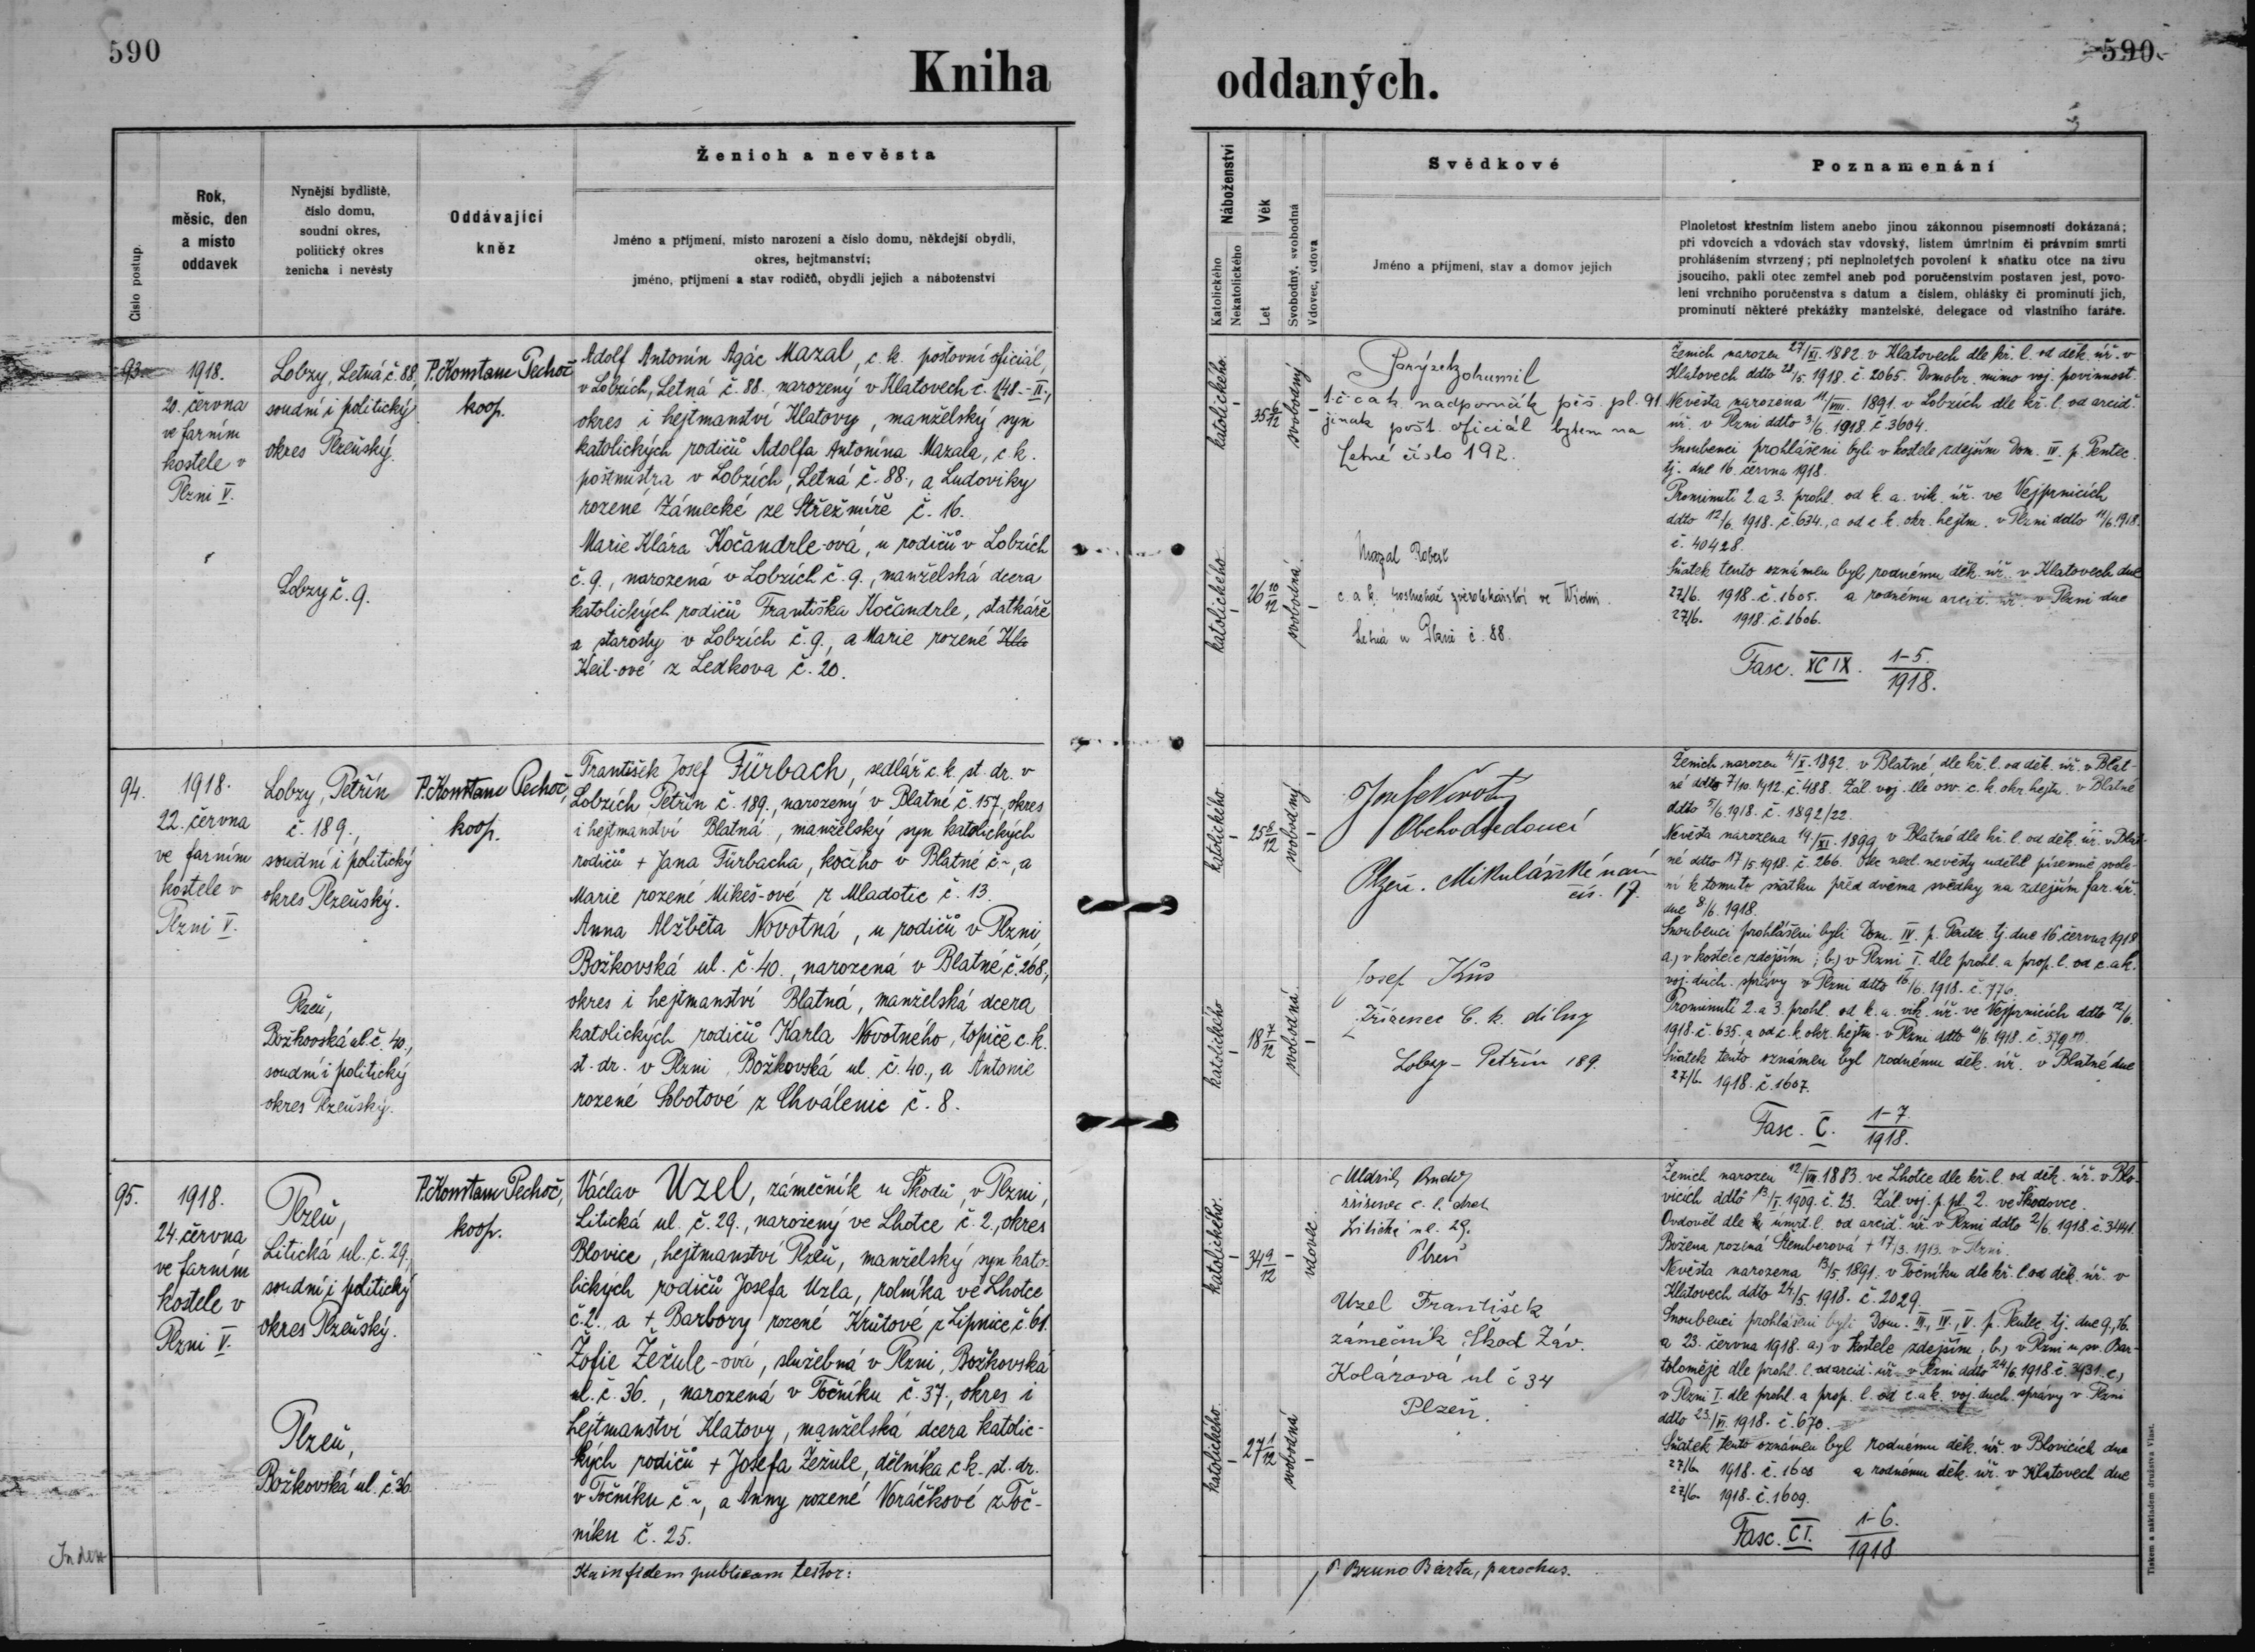 590
Kniha
oddaných.
590
Číslo postup.
Rok,
měsíc, den
a místo
oddavek
Nynější bydliště,
číslo domu,
soudní okres,
politický okres
ženicha i nevěsty
Oddávající
kněz
Ženich a nevěsta
Jméno a příjmení, místo narození a číslo domu, někdejší obydlí,
okres, hejtmanství;
jméno, příjmení a stav rodičů, obydlí jejich a náboženství
93.
1918.
20. června
ve farním
kostele v
Plzni V.
Lobzy, Letná č. 88,
soudní i politický
okres Plzeňský.
Lobzy č. 9.
P. Konstanc Pechoč
koop.
Adolf Antonín Agác Mazal, c. k. poštovní oficiál,
v Lobzích, Letná č. 88. narozený v Klatovech č. 148.-II.,
okres i hejtmanství Klatovy, manželský syn
katolických rodičů Adolfa Antonína Mazala, c. k.
poštmistra v Lobzích, Letná č. 88., a Ludoviky
rozené Zámecké ze Střežmíře č. 16.
Marie Klára Kočandrle-ová, u rodičů v Lobzích
č. 9., narozená v Lobzích č. 9., manželská dcera
katolických rodičů Františka Kočandrle, statkáře
a starosty v Lobzích č. 9., a Marie rozené Kla
Keil-ové z Ledkova č. 20.
94.
1918.
22. června
ve farním
kostele v
Plzni V.
Lobzy, Petřín
č. 189.,
soudní i politický
okres Plzeňský.
Plzeň,
Božkovská ul. č. 40.,
soudní i politický
okres Plzeňský.
P. Konstanc Pechoč,
koop.
František Josef Fürbach, sedlář c. k. st. dr. v
Lobzích Petřín č. 189., narozený v Blatné č. 157., okres
i hejtmanství Blatná, manželský syn katolických
rodičů + Jana Fürbacha, kočího v Blatné č ~, a
Marie rozené Mikeš-ové z Mladotic č. 13.
Anna Alžběta Novotná, u rodičů v Plzni
Božkovská ul. č. 40., narozená v Blatné č. 268,
okres i hejtmanství Blatná, manželská dcera
katolických rodičů Karla Novotného, topiče c. k.
st. dr. v Plzni Božkovská ul. č. 40., a Antonie
rozené Sobotové z Chválenic č. 8.
95.
1918.
24. června
ve farním
kostele v
Plzni V.
Plzeň,
Litická ul. č. 29,
soudní i politický
okres Plzeňský.
Plzeň,
Božkovská ul. č. 36.
P. Konstanc Pechoč,
koop.
Václav Uzel, zámečník u Škodů, v Plzni,
Litická ul. č. 29., narozený ve Lhotce č. 2., okres
Blovice, hejtmanství Plzeň, manželský syn kato-
lických rodičů Josefa Uzla, rolníka ve Lhotce
č. 2. a + Barbory rozené Krůtové z Lipnice č. 61.
Žofie Žežule-ová, služebná v Plzni, Božkovská
ul. č. 36., narozená v Točníku č. 37., okres i
hejtmanství Klatovy, manželská dcera katolic-
kých rodičů + Josefa Žežule, dělníka c. k. st. dr.
v Točníku č ~, a Anny rozené Voráčkové z Toč-
níku č. 25.
in fidem publicam testor:
Index
Náboženství
Katolického
Nekatolického
Věk
Let
Svobodný, svobodná
Vdovec, vdova
Svědkové
Jméno a příjmení, stav a domov jejich
Poznamenání
Plnoletost křestním listem anebo jinou zákonnou písemností dokázaná;
při vdovcích a vdovách stav vdovský, listem úmrtním či právním smrti
prohlášením stvrzený; při neplnoletých povolení k sňatku otce na živu
jsoucího, pakli otec zemřel aneb pod poručenstvím postaven jest, povo-
lení vrchního poručenstva s datum a číslem, ohlášky či prominutí jich,
prominutí některé překážky manželské, delegace od vlastního faráře.
katolického
35 6/12
svobodný
Bohumil
c. a k. nadporučík pěš. pl. 91
jinak pošt. oficiál bytem na
Letné číslo 192.
katolického
26 10/12
svobodná
Mazal Robert
c. a k. posluchač zvěrolékařství ve Vídni.
Letná u Plzně č. 88.
Ženich narozen 27/XI. 1882. v Klatovech dle kř. l. od děk. úř. v
Klatovech ddto 23/5. 1918. č. 2065. Domobr. mimo voj. povinnost.
Nevěsta narozena 11/VIII. 1891. v Lobzích dle kř. l. od arcid.
úř. v Plzni ddto 3/6. 1918. č. 3604.
Snoubenci prohlášeni byli v kostele zdejším Dom. IV. p. Pentec.
tj. dne 16. června 1918.
Prominutí 2. a 3. prohl. od k. a. vik. úř. ve Vejprnicích
ddto 12/6. 1918. č. 634., a od c. k. okr. hejtm. v Plzni ddto 11/6. 1918.
č. 40428.
Sňatek tento oznámen byl rodnému děk. úř. v Klatovech dne
27/6. 1918. č. 1605. a rodnému arcid. úř. v Plzni dne
27/6. 1918. č. 1606.
Fasc. XCIX. 1-5./1918.
katolického
25 8/12
svobodný
Josef Novotný
Obchodvedoucí
Plzeň. Mikulášské nám
čís. 17.
katolického
18 7/12
svobodná
Josef Kůs
Zřízenec C. k. dílny
Lobzy - Petřín 189.
Ženich narozen 4/X. 1892. v Blatné dle kř. l. od děk. úř. v Blat-
né ddto 7/10. 1912. č. 488. Zál. voj. dle osv. c. k. okr. hejtm. v Blatné
ddto 5/6. 1918. č. 1892/22.
Nevěsta narozena 14/XI. 1899 v Blatné dle kř. l. od děk. úř. v Blat-
né ddto 17/5. 1918. č. 266. Otec nezl. nevěsty udělil písemné svole-
ní k tomuto sňatku před dvěma svědky na zdejším far. úř.
dne 8/6. 1918.
Snoubenci prohlášeni byli Dom. IV. p. Pentec. tj. dne 16 června 1918
a) v kostele zdejším; b) v Plzni I. dle prohl. a prop. l. od c. a k.
voj. duch. správy v Plzni ddto 16/6. 1918. č. 776.
Prominutí 2. a 3. prohl. od k. a. vik. úř. ve Vejprnicích ddto 12/6.
1918. č. 635., a od c. k. okr. hejtm. v Plzni ddto 10/6. 1918.
Sňatek tento oznámen byl rodnému děk. úř. v Blatné dne
27/6. 1918. č. 1607.
Fasc. C. 1-7./1918.
katolického
34 9/12
vdovec
zřízenec c. k. drah
Litická ul. 29.
Plzeň
katolického
27 1/12
svobodná
Uzel František
zámečník Škod. Záv.
Kolárová ul č 34
Plzeň.
Ženich narozen 12/IX. 1883. ve Lhotce dle kř. l. od děk. úř. v Blo-
vicích ddto 13/I. 1909. č. 23. Zál. voj. p. pl. 2. ve Škodovce.
Ovdověl dle úmrt. l. od arcid. úř. v Plzni ddto 2/6. 1918. č. 3441.
Božena rozená Štemberová + 17/3. 1913. v Plzni.
Nevěsta narozena 13/5. 1891. v Točníku dle kř. l. od děk. úř. v
Klatovech ddto 24/5. 1918. č. 2029.
Snoubenci prohlášeni byli Dom. III., IV., V. p. Pentec. tj. dne 9., 16.
a 23. června 1918. a.) v kostele zdejším; b.) v Plzni u sv. Bar-
toloměje dle prohl. l. od arcid. úř. v Plzni ddto 24/6. 1918. č. 3931. c.)
v Plzni I. dle prohl. a prop. l. od c. a k. voj. duch. správy v Plzni
ddto 23./VI. 1918. č. 670.
Sňatek tento oznámen byl rodnému děk. úř. v Blovicích dne
27/6. 1918. č. 1608 a rodnému děk. úř. v Klatovech dne
27/6. 1918. č. 1609.
Fasc. CI. 1-6./1918
P. Bruno Bárta, parochus.
Tiskem a nákladem družstva Vlast.